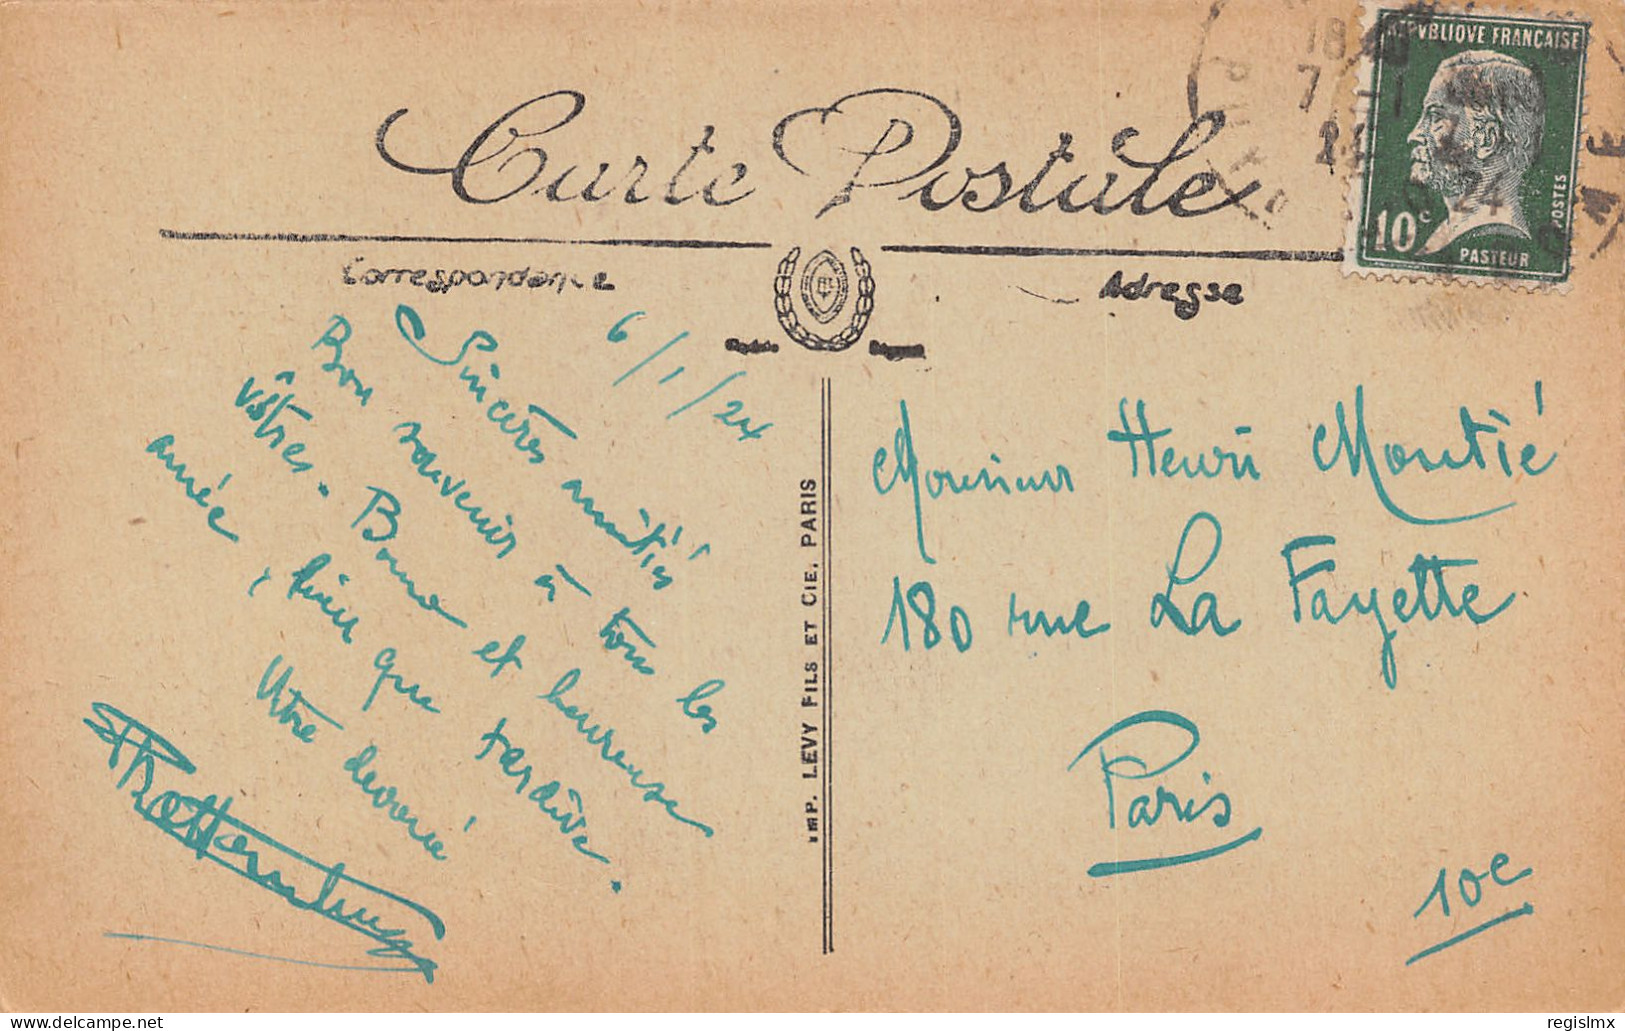 Carte Postale
Correspondance
Adresse
RÉPVBLIQVE FRANÇAISE
10c
PASTEUR
POSTES
18
7 - 1
24
6/1/24
Sincères amitiés
Bon souvenir à tous les
vôtres. Bonne et heureuse
année, bien que tardive.
Votre dévoué
IMP. LEVY FILS ET CIE, PARIS
Monsieur Henri Montié
180 rue La Fayette
Paris
10c
regislmx